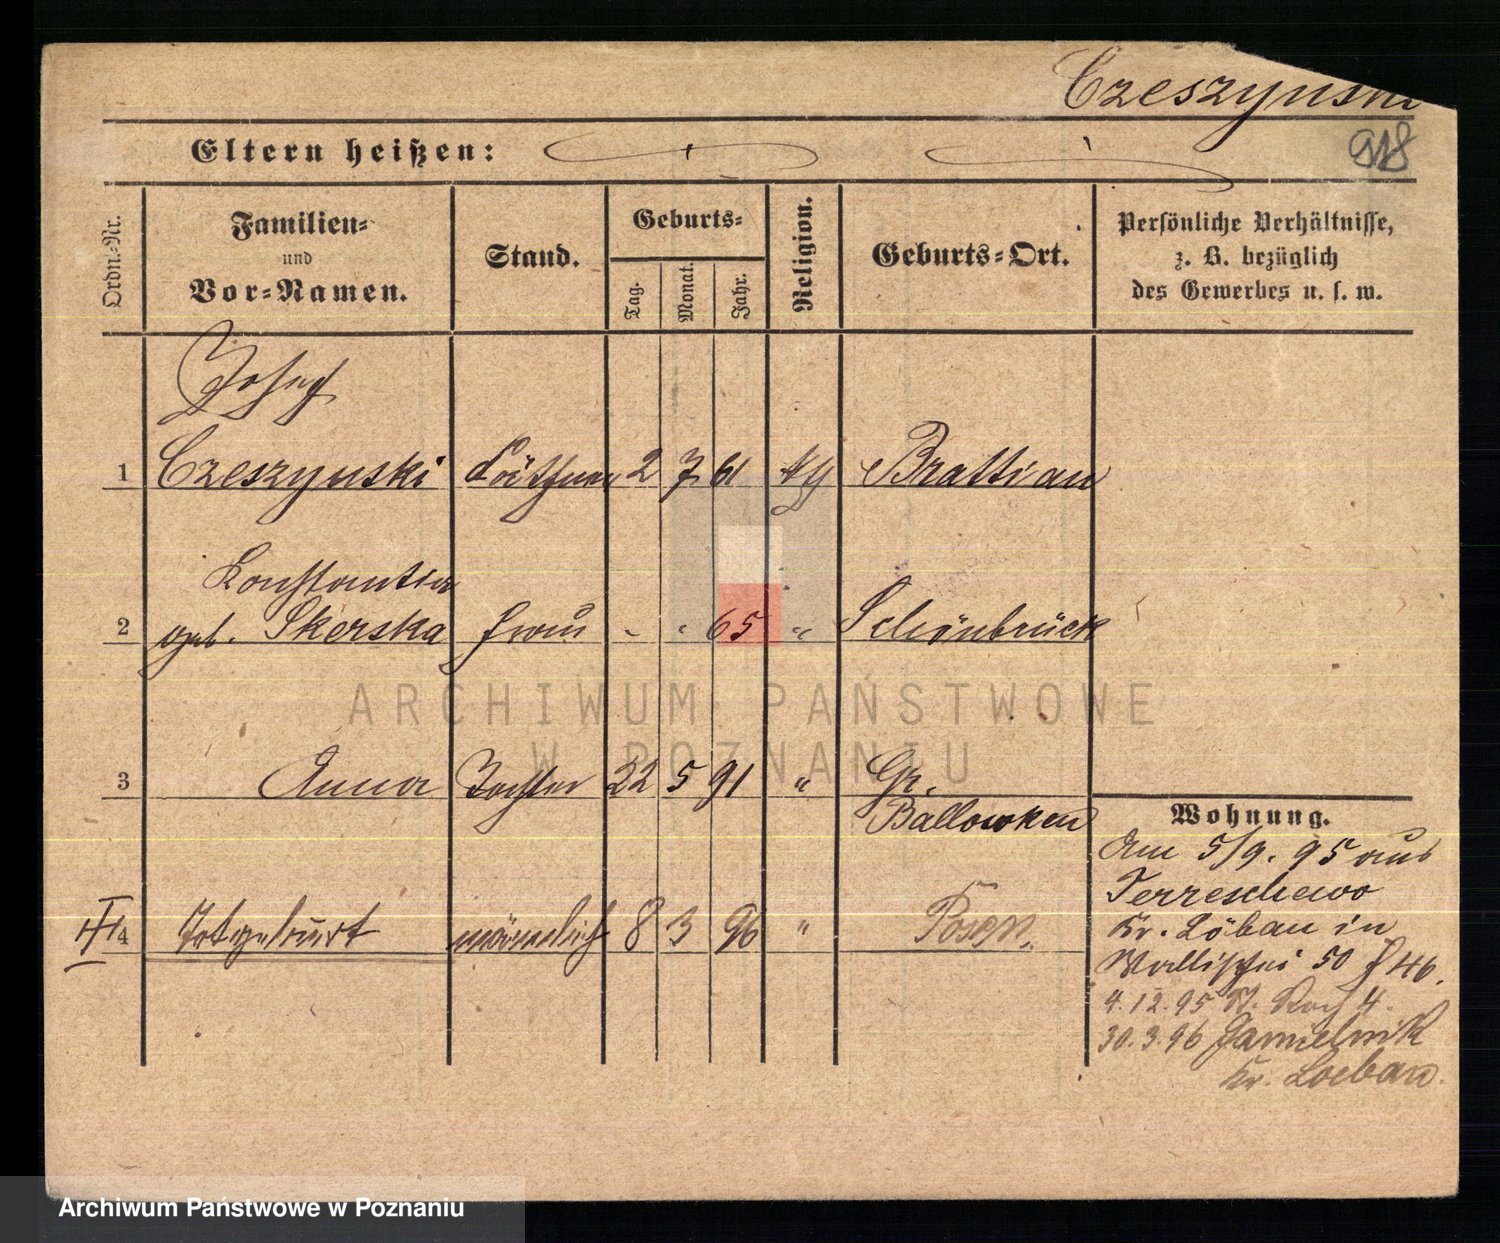 Czeszynski
918
Eltern heißen:
Ordn.-Nr.
Familien-
und
Vor-Namen.
Stand.
Geburts-
Tag.
Monat.
Jahr.
Religion.
Geburts-Ort.
Persönliche Verhältnisse,
z. B. bezüglich
des Gewerbes u. s. w.
Josef
1 Czeszynski 2 7 61 Brattian
Konstantia
2 geb. Skerska Frau " " 65 " Schönbrück
ARCHIWUM PAŃSTWOWE
W POZNANIU
3 Anna Tochter 22 5 91 " Gr.
Ballowken
4 Totgeburt männlich 8 3 96 " Posen
Wohnung.
Am 5/9. 95 aus
Terreschewo
Kr. Löbau in
Wallischei 50 J 46.
4. 12. 95 St. Roch 4.
30. 3. 96
Kr. Loebau.
Archiwum Państwowe w Poznaniu